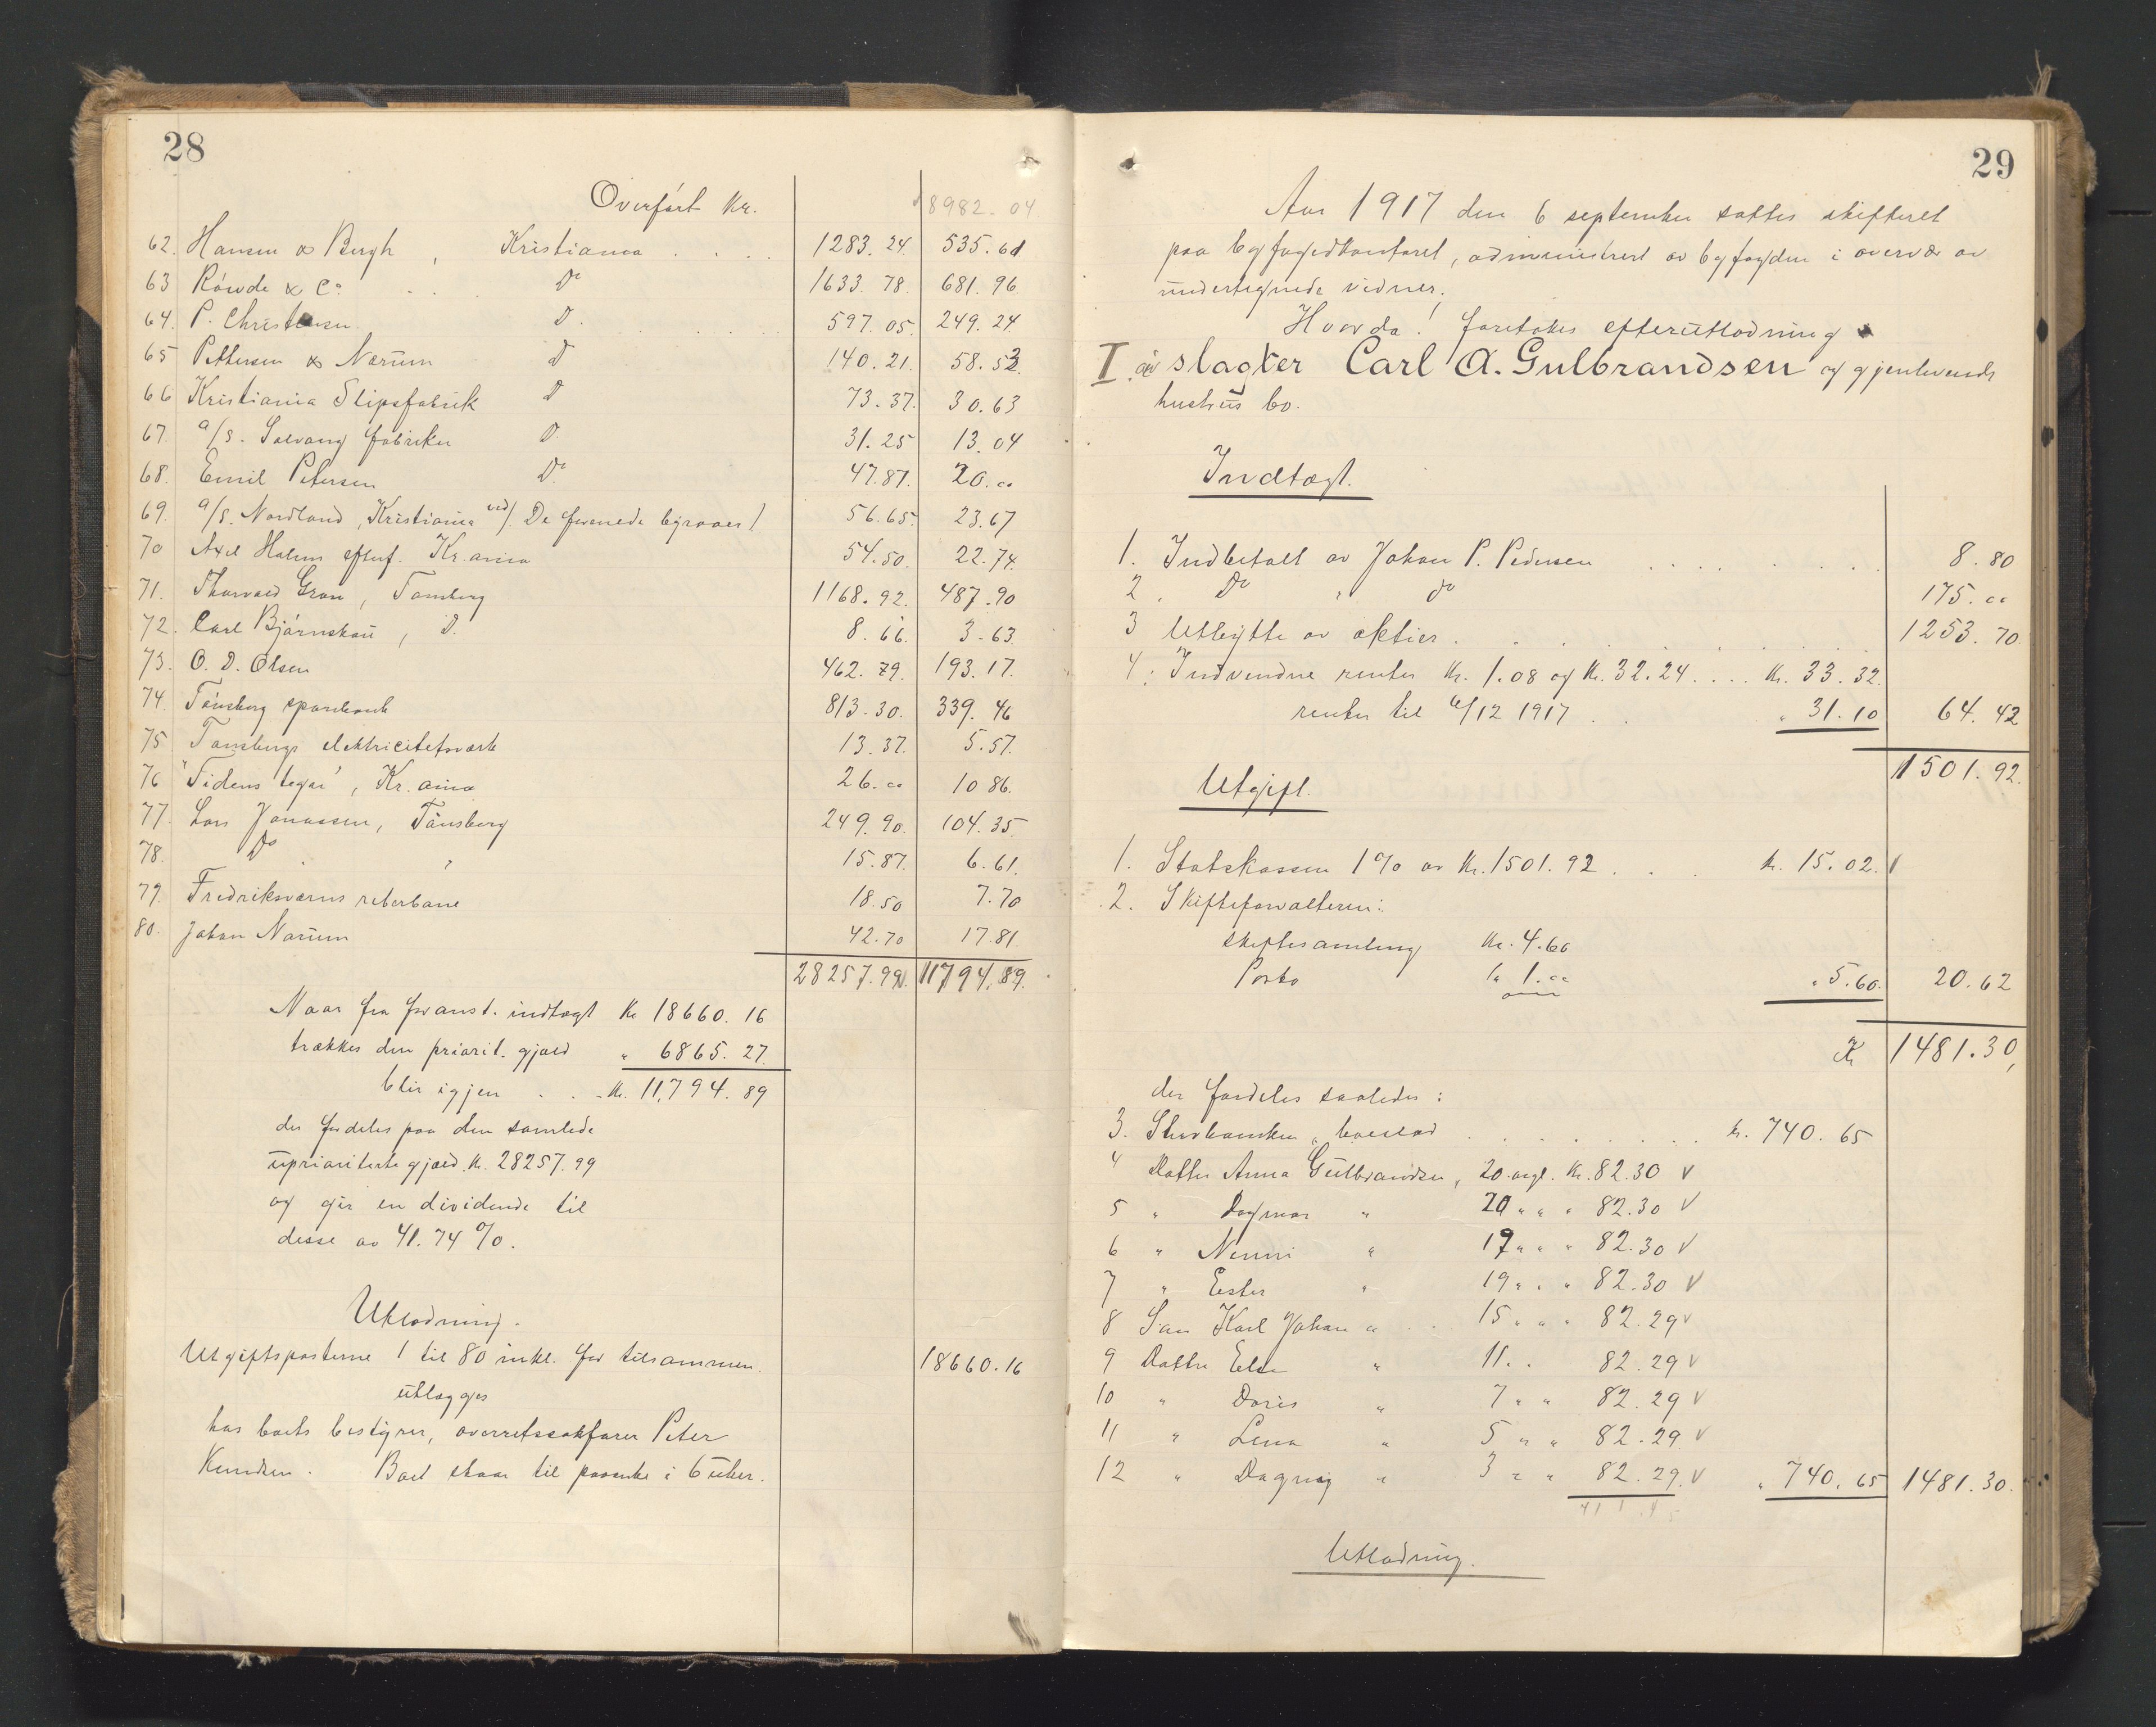 28
Overført Kr. 8982.04
62. Hansen & Bergh, Kristiania . . . . 1283.24 535.61
63 Røwde & Co . . . Do 1633.78. 681.96
64. P. Christensen D. . . . . 597.05. 249.24.
65 Pettersen & Nærum D 140.21. 58.52.
66 Kristiania Slipsfabrik D 73.37. 30.63
67. A/S. Solvang fabriker D. 31.25 13.04
68. Emil Petersen Do. 47.87. 20.00
69. A/S. Nordland, Kristiania ved/. De forenede byraaer/ 56.65. 23.67
70 Axel Holms efterf. Kr.ania 54.50. 22.74.
71. Thorvald Gron, Tønsberg 1168.92. 487.90
72. Carl Bjørnskau, D. 8.66. 3.63.
73. O. D. Olsen 462.79. 193.17.
74. Tønsberg sparebank 813.30. 339.46
75 Tønsbergs elektricitetsværk 13.37. 5.57.
76 "Tidens tegn", Kr.ania 26.00 10 86.
77. Lars Jonassen, Tønsberg 249.90. 104.35.
78. Do " 15.87. 6.61.
79. Fredriksværns reberbane 18.50 7.70
80. Johan Narum 42.70 17.81.
28257.99. 11794.89.
Naar fra foranst. indtægt Kr 18660.16
trækkes den priorit. gjæld " 6865.27
blir igjen . . . Kr. 11,794.89
der fordeles paa den samlede
upriorterte gjæld Kr. 28257.99
og gir en dividende til
desse av 41.74 %.
Utlodning.
Utgiftsposterne 1 til 80 inkl. for tilsammen 18660.16
utlægges
hos boets bestyrer, overretssakfører Peter
Knudsen. Boet staar til paaanke i 6 uker.
29
Aar 1917 den 6 september sattes skifteret
paa byfogedkontoret, administrert av byfogden i overvær av
undertegnede vidner.
Hvorda! foretokes efterutlodning
I av slagter Carl A. Gulbrandsen og gjenlevende
hustrus bo.
Indtægt.
1. Indbetalt av Johan P. Pedersen . . . . . . . 8.80
2. Do " do 175.00
3 Utbytte av aktier . . . . . . . 1253.70
4. Indvundne renter Kr. 1.08 og Kr. 32.24 . . . . Kr. 33.32.
renter til 6/12 1917 . . " 31.10 64.42
1501.92.
Utgift.
1. Statskassen 1% av Kr. 1501.92 . . . Kr. 15.02.
2. Skifteforvalteren:
skiftesamling Kr. 4.60
Porto " 1.00 " 5.60. 20.62
Kr 1481.30,
der fordeles saaledes:
3. Enkens boeslod . . . . . . . . . kr. 740.65
4 Datter Anna Gulbrandsen, 20 aargl. Kr. 82.30 V
5 " Dagmar " 20 " " " 82.30 V
6 " Nenni " 19 " " " 82.30 V
7 " Ester " 19 " " " 82.30 V
8 Søn Karl Johan " . . 15 " " " 82.29 V
9 Datter Else " 11. . 82.29 V
10 " Doris " 7 " " 82.29 V
11 " Lena " 5 " " 82.29 V
12 " Dagny " 3 " " 82.29. V " 740.65 1481.30.
Utlodning.